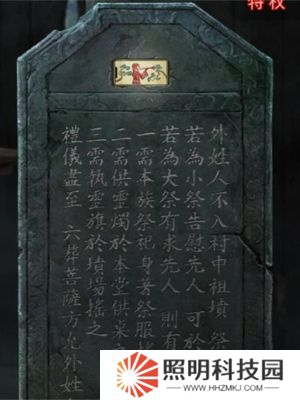 特权
外姓人不入村中祖墳 祭
若為小祭告慰先人 可於
若為大祭有求先人 則有
一需本族祭祀身著祭服
二需供靈燭於本堂供桌
三需執靈旗於墳場搖之
禮儀盡至 六葬菩薩方允外姓
照明科技园
WWW.HHZMKJ.COM